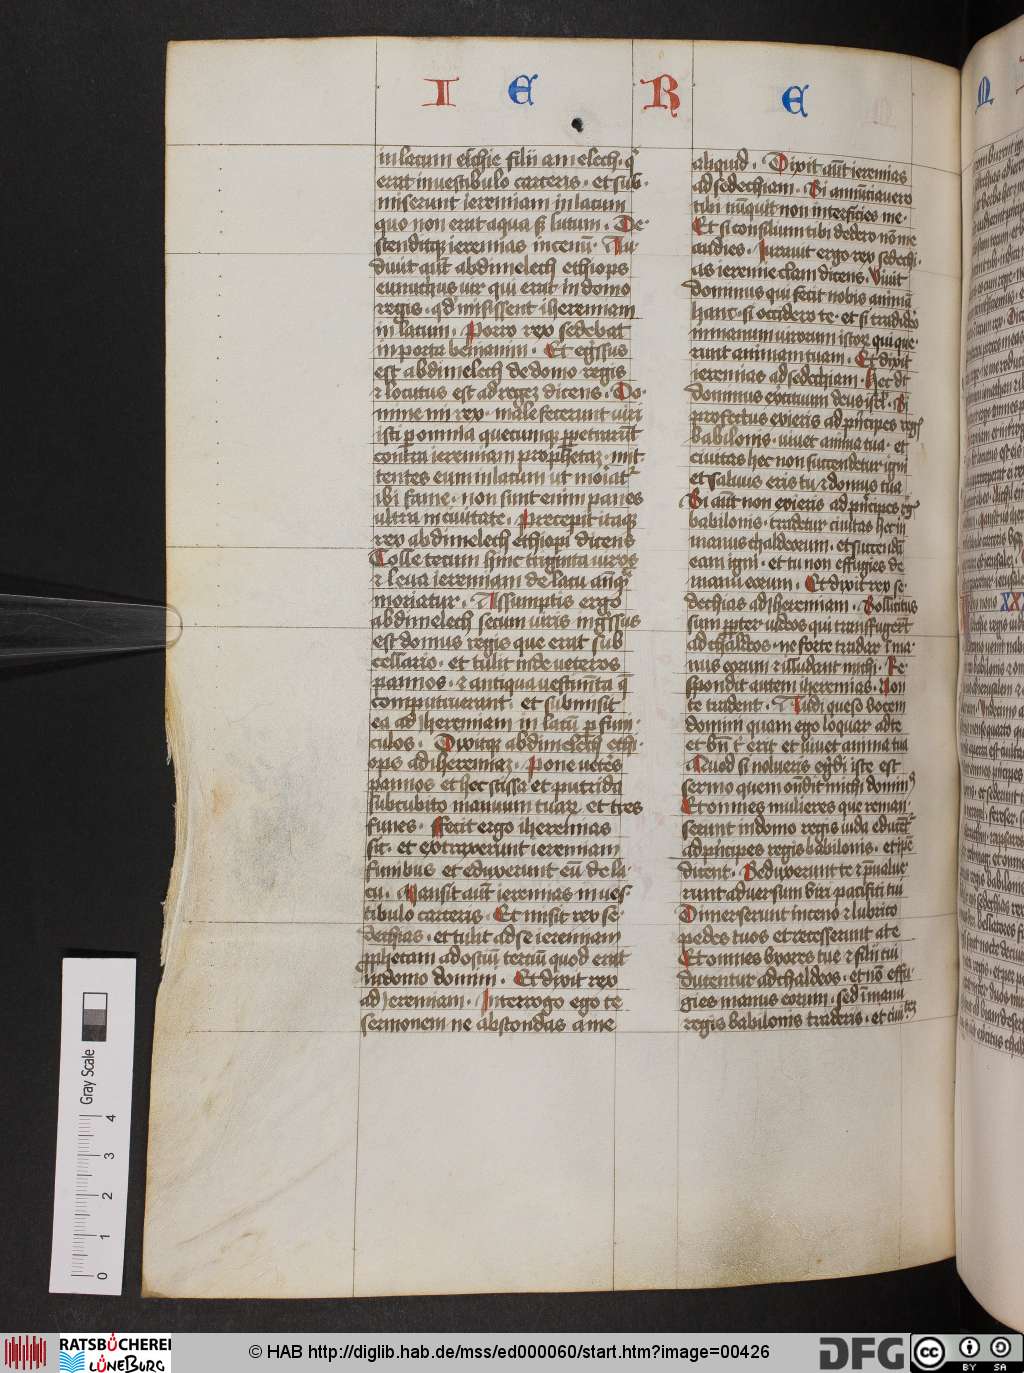 I E R E
in lacum elchie filii amelech · q̃
erat in uestibulo carceris · et sub·
miserunt ieremiam in lacum
quo non erat aqua sꝫ lutum · De·
scenditqꝫ ieremias in cenū · Au
diuit aūt abdimelech ethiops
eunuchus uir qui erat in domo
regis · qd' misissent iheremiam
in lacum · Porro rex sedebat
in porta beniamin · Et egr̃ssus
est abdimelech de domo regis
⁊ locutus est ad regeꝫ dicens · Do·
mine mi rex · male fecerunt uiri
isti ꝑ omnia quecumqꝫ ꝑpetrarūt
contra ieremiam prophetaꝫ · mit·
tentes eum in lacum ut moriat᷑
ibi fame · non sunt enim panes
ultra in ciuitate · Precepit itaqꝫ
rex abdimelech ethiopi dicens
Tolle tecum hinc triginta uiros
⁊ leua ieremiam de lacu an̄qꝫ
moriatur · Assumptis ergo
abdimelech secum uiris ingr̃ssus
est domus regis que erat sub
cellario · et tulit inde ueteres
pannos · ⁊ antiqua uestim̄ta q̄
computruerant · et submisit
ea ad iheremiam in lacū ꝑ funi·
culos · Dixitqꝫ abdimelech ethi·
ops ad iheremiaꝫ · Pone ueteres
pannos et hec scissa et putrida
sub cubito manuum tuaꝝ et tres
funes · Fecit ergo iheremias
sic · et extraxerunt ieremiam
funibus et eduxerunt eū de la
cu · Mansit aūt ieremias in ues·
tibulo carceris · Et misit rex se·
dechias · et tulit ad se ieremiam
ꝓphetam ad ostiū tertium quod erat
in domo domini · Et dixit rex
ad ieremiam · Interrogo ego te
sermonem ne abscondas a me
aliquid · Dixit aūt ieremias
ad sedechiam · Si annūciauero
tibi nūquit non interficies me·
Et si consilium tibi dedero nō me
audies · Iurauit ergo rex sedechi·
as ieremie clam dicens · Viuit
dominus qui fecit nobis animā
hanc · si occidero te · et si tradidero
in manum uirorum istoꝝ qui que·
runt animam tuam · Et dixit
ieremias ad sedechiam · Hec dt̄
dominus exercituum deus isrl' · Si
profectus exieris ad prīcipes regis
babilonis · uiuet anima tua · et
ciuitas hec non succendetur igni
et saluus eris tu ⁊ domus tua
Si aūt non exieris ad prīcipes rꝫ
babilonis · tradetur ciuitas hec in
manus chaldeorum · et succendū
eam igni · et tu non effugies de
manu eorum · Et dixit rex se·
dechias ad iheremiam · Sollicitus
sum ꝓpter iudeos qui transfugerūt
ad chaldeos · ne forte tradar ī ma·
nus eorum ⁊ illudant michi · Re·
spondit autem iheremias · Non
te tradent · Audi queso vocem
domini quam ego loquar ad te
et bn̄ t' erit et uiuet anima tua
Quod si nolueris egr̃di iste est
sermo quem ondit michi dominꝰ
Et omnes mulieres que reman·
serunt in domo regis iuda educēt᷑
ad prīcipes regis babilonis · et ip̄e
dicent · Seduxerunt te ⁊ p̄ualue
runt aduersum uiri pacifici tui
Dimerserunt in ceno ⁊ lubrico
pedes tuos et recesserunt a te
Et omnes vxores tue ⁊ filii tui
ducentur ad chaldeos · et nō effu
gies manus eorum · sed ī manu
regis babilonis traderis · et ciuitas
Gray Scale
0 1 2 3 4
RATSBÜCHEREI
LÜNEBURG
© HAB http://diglib.hab.de/mss/ed000060/start.htm?image=00426
DFG
cc BY SA